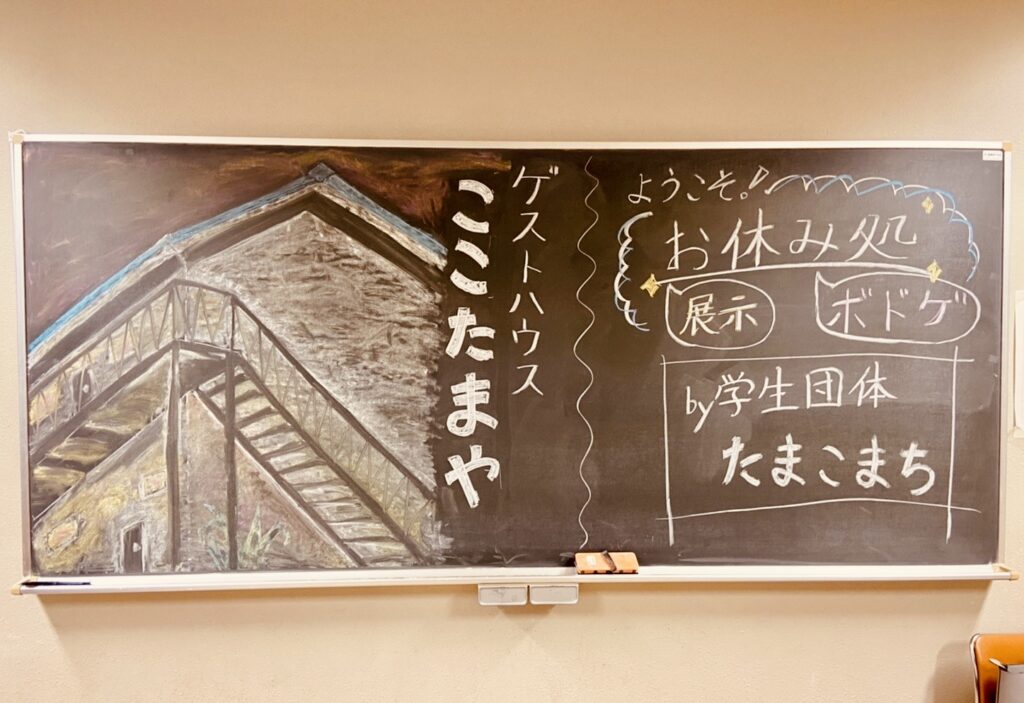 ゲストハウス
ここたまや
ようこそ!
お休み処
展示
ボドゲ
by学生団体
たまこまち